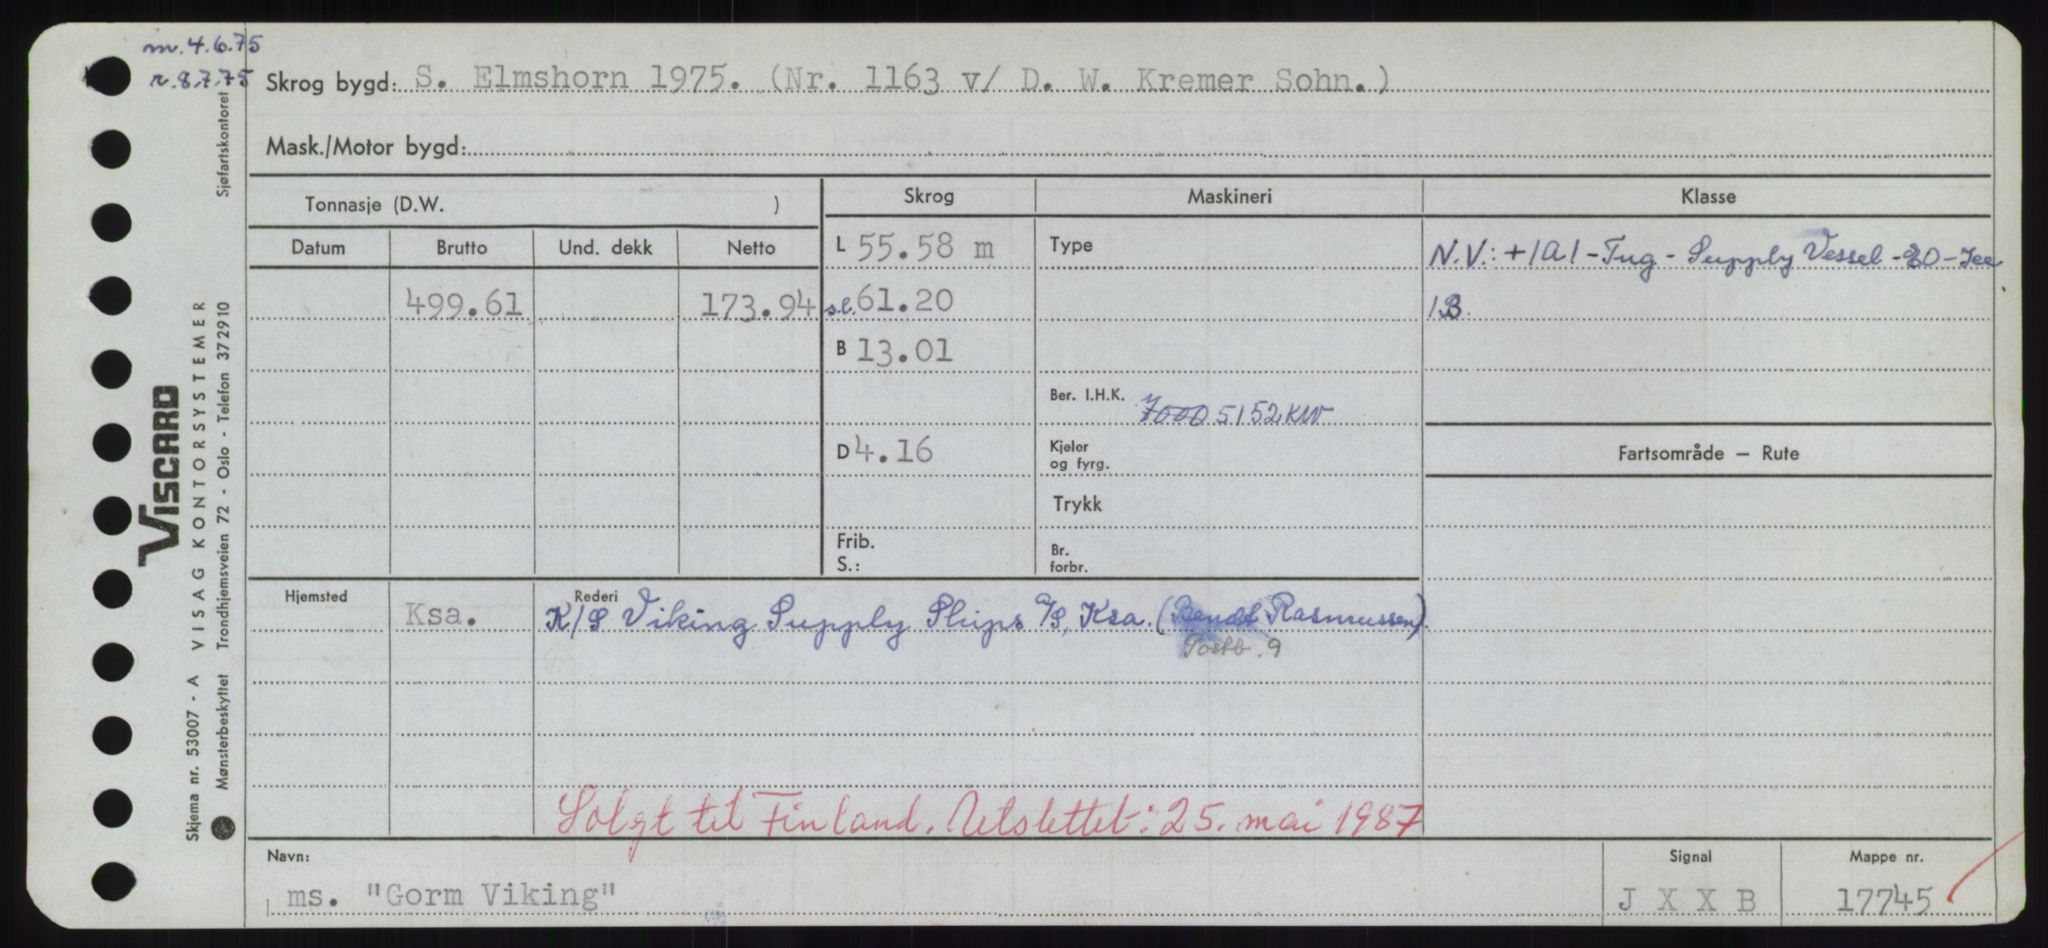 m. 4.6.75
r. 8.7.75
Skrog bygd: S. Elmshorn 1975. (Nr. 1163 v/ D. W. Kremer Sohn.)
Mask./Motor bygd:
Tonnasje (D.W. )
Skrog
Maskineri
Klasse
Datum Brutto Und. dekk Netto
L 55.58 m
Type
N.V.: +1A1 - Tug - Supply Vessel - E0 - Ice
499.61 173.94
s.l. 61.20
1B
B 13.01
Ber. I.H.K. 7000 5152 KW
D 4.16
Kjeler
og fyrg.
Fartsområde – Rute
Trykk
Frib.
S.:
Br.
forbr.
Hjemsted
Ksa.
Rederi
K/S Viking Supply Ships A/S, Ksa. (Bendt Rasmussen).
Postb. 9
Solgt til Finland. Utslettet: 25. mai 1987
Navn:
ms. "Gorm Viking"
Signal
J X X B
Mappe nr.
17745
VISCARD
Skjema nr. 53007 - A VISAG KONTORSYSTEMER
Mønsterbeskyttet Trondhjemsveien 72 - Oslo - Telefon 372910 Sjøfartskontoret